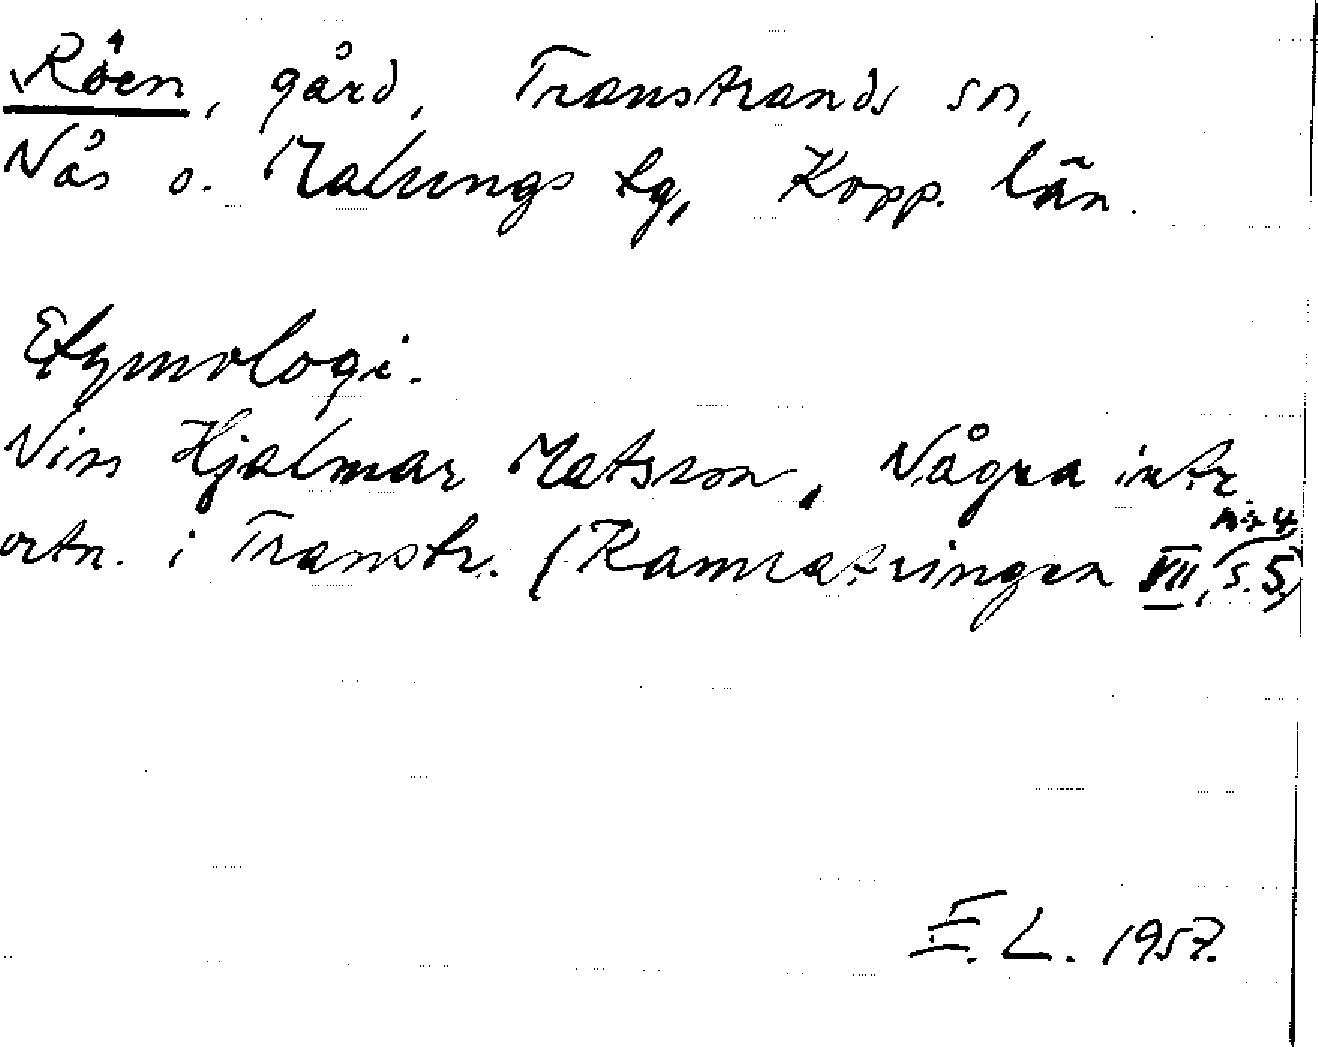 Råen, gård, Transtrands sn,
Nås o. Malungs tg, Kopp. län.
Etymologi.
Hjalmar Matsson, Några intr.
ortn. i Transtr. (Kamratringen VII, nr 4, s. 5)
E. L. 1957.